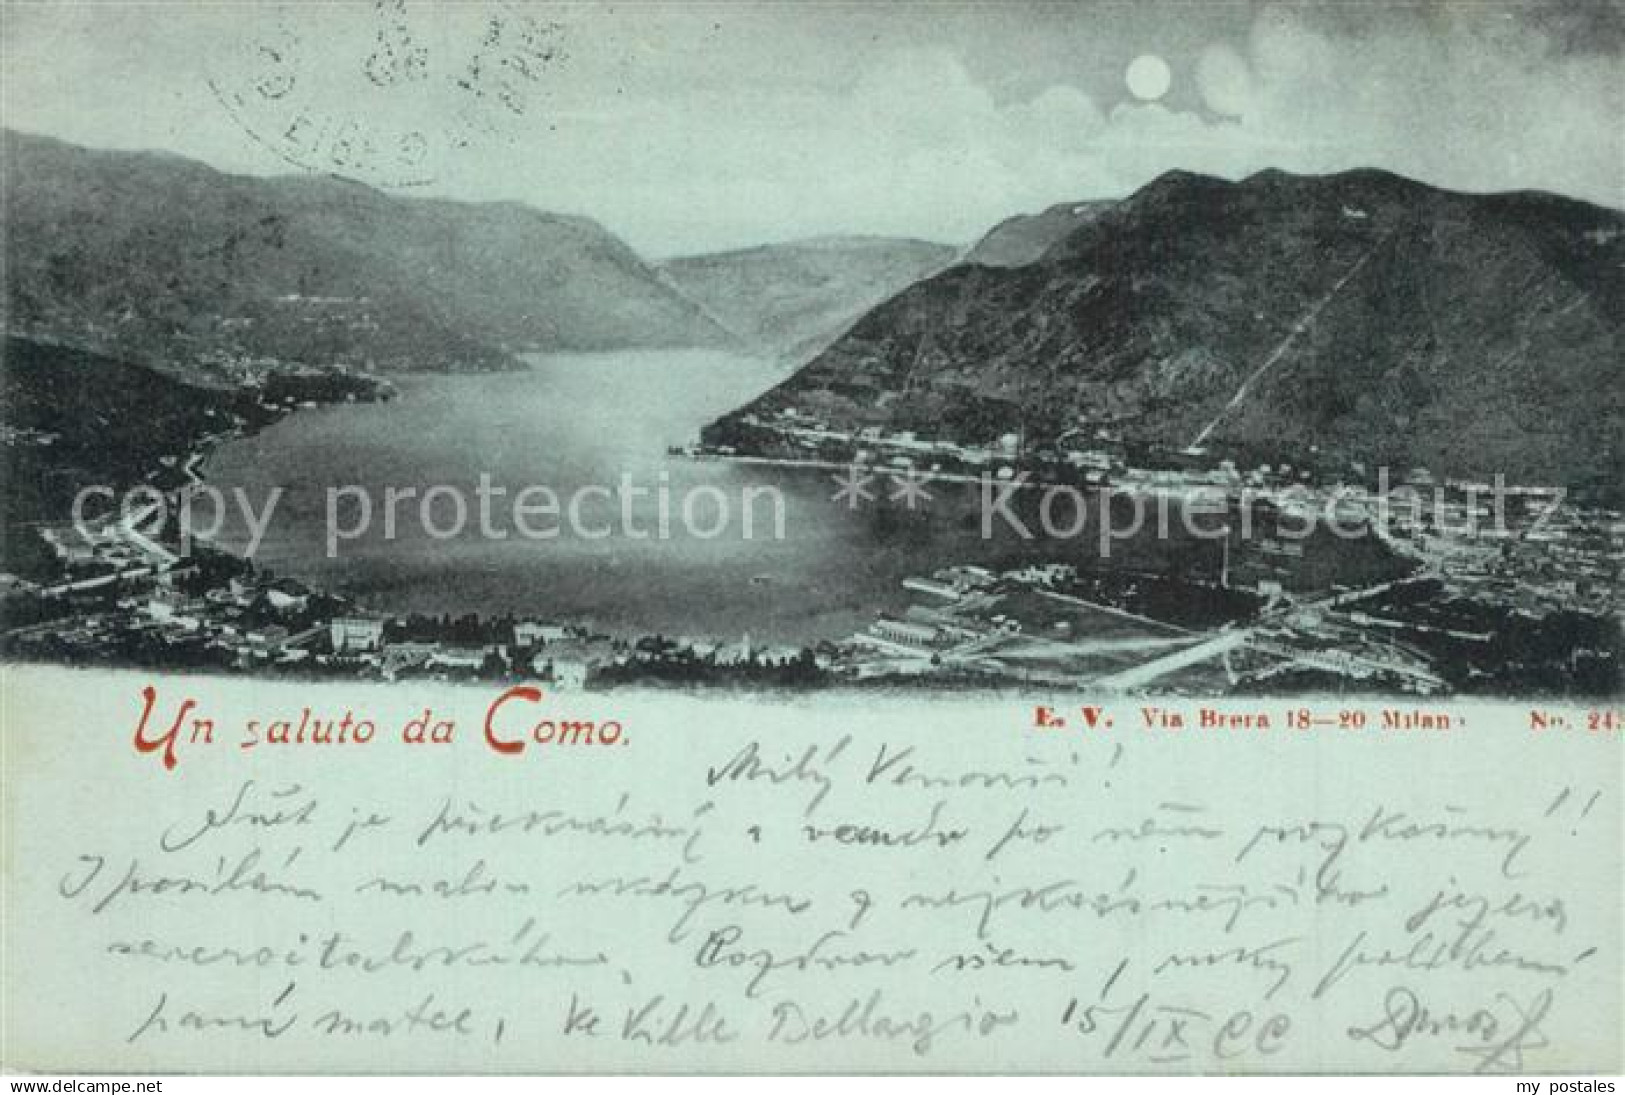 copy protection ** Kopierschutz
Un saluto da Como.
E. V. Via Brera 18—20 Milano No. 24
Milý !
Svět je překrásný a po něm rozkošný!!
I posílám malou ukázku z nejkrásnějšího jezera
severoitalského. Pozdrav všem, ruky políbení
paní matce, Ve Ville Bellagio 15/IX
delcampe.net
my postales